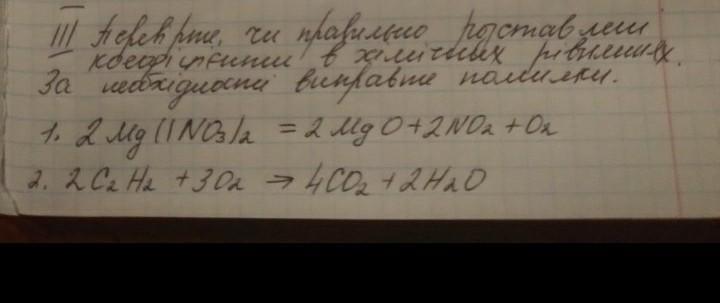 III Перевірте, чи правильно розставлені
коефіцієнти в хімічних рівняннях.
За необхідності виправте помилки.
1. 2Mg(NO₃)₂ = 2MgO+2NO₂+O₂
2. 2C₂H₂ +3O₂ → 4CO₂+2H₂O